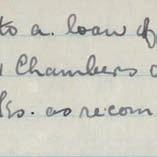 to a loan of
Chambers
as recom